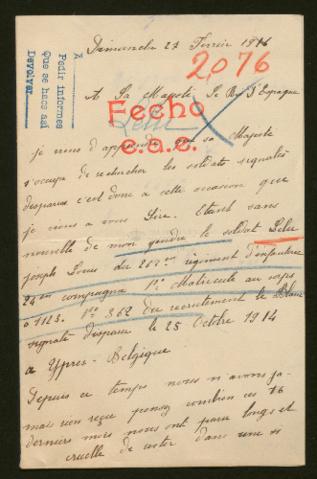 Dimanche 27 Fevrier 1916
À
Pedir informes
Que se haga así
Devolver
2076
A Sa Majesté Le Roi d'Espagne
Fecho
e.a.c.
Lelu
je viens d'apprendre que sa Majesté
s'occupe de rechercher les soldats signalés
disparus c'est donc a cette occasion que
je viens a vous Sire. Etant sans
nouvelle de mon gendre le soldat Lelu
joseph Louis du 202em régiment d'infanterie
24em compagnie No Matricule au corps
a 1123. No 362 du recrutement le Blanc
signalé disparu le 25 Octobre 1914
a Ypres - Belgique
Depuis ce temps nous n'avons ja-
mais rien reçue pensez combien ces
derniers mois nous ont parue longs et
cruelle de rester dans une si